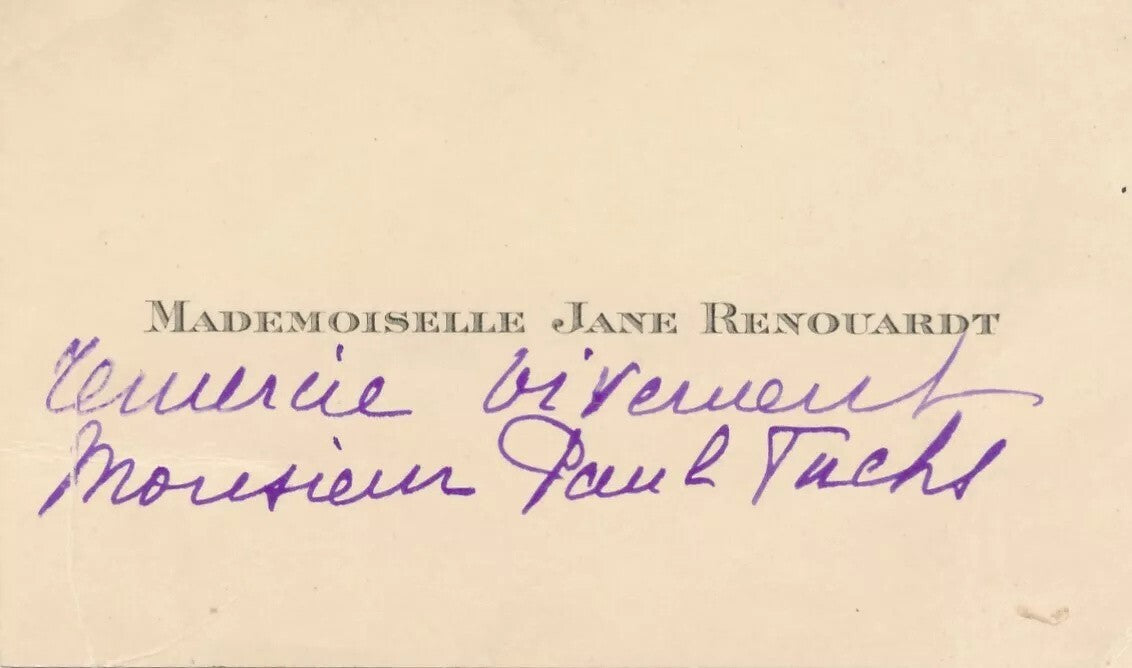 MADEMOISELLE JANE RENOUARDT
remercie vivement
Monsieur Paul Fuchs